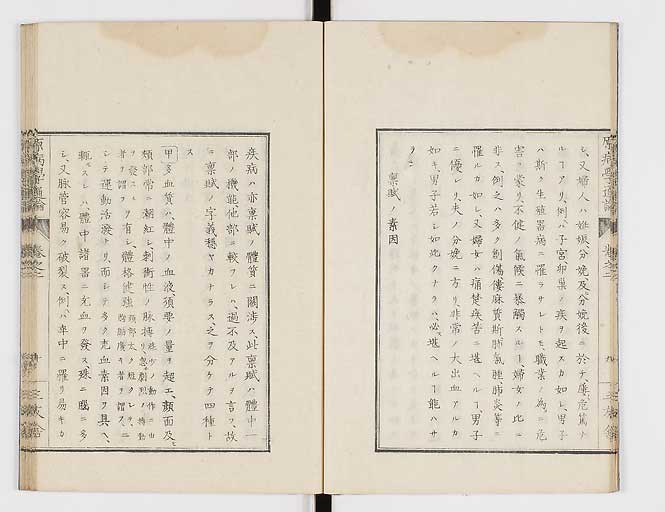 シ、又婦人ハ姙娠、分娩及分娩後ニ於テ屢危篤ナ
ルーアリ、例ハ子宮、卵巢ノ疾ヲ起スカ如シ、男子
ハ斯ク生殖器病ニ罹ラサレトモ、職業ノ為ニ危
害ヲ蒙リ、不健ノ氣候ニ暴觸スルー婦女ノ比ニ
非ス、例之ハ多ク創傷、僂麻質斯、肺衝肺炎等ニ
罹ルカ如シ、又婦女ハ痛楚疾苦ニ堪ヘルー、男子
ニ優レリ、夫ノ分娩ニ方リ、非常ノ大出血アルカ
如キ、男子若シ如此クナラハ、必堪ヘルー能ハサ
リニ
稟賦ノ素因
疾病ハ亦稟賦ノ體質ニ關渉ス、此稟賦ハ體中一
部ノ機能他部ニ較フレハ、過不及アルヲ言フ、故
ニ稟賦ノ字義穏ヤカナラス、之ヲ分ケテ四種ト
ス
甲 多血質ハ、體中ノ血液須要ノ量ヲ超エ、顏面及
頬部常ニ潮紅シ、刺衝性ノ脉搏
ヲ有シ、體格健強
シテ運動活潑ナリ、而シテ多ク充血素因ヲ具ヘ、
輙スレハ體中諸器ニ充血ヲ發ス、殊ニ腦ニ多
シ、又脉管容易ク破裂ス、例ハ卒中ニ罹リ易キカ
原病學通論
卷之二
九
三友舎
原病學通論
卷之二
十
三友舎